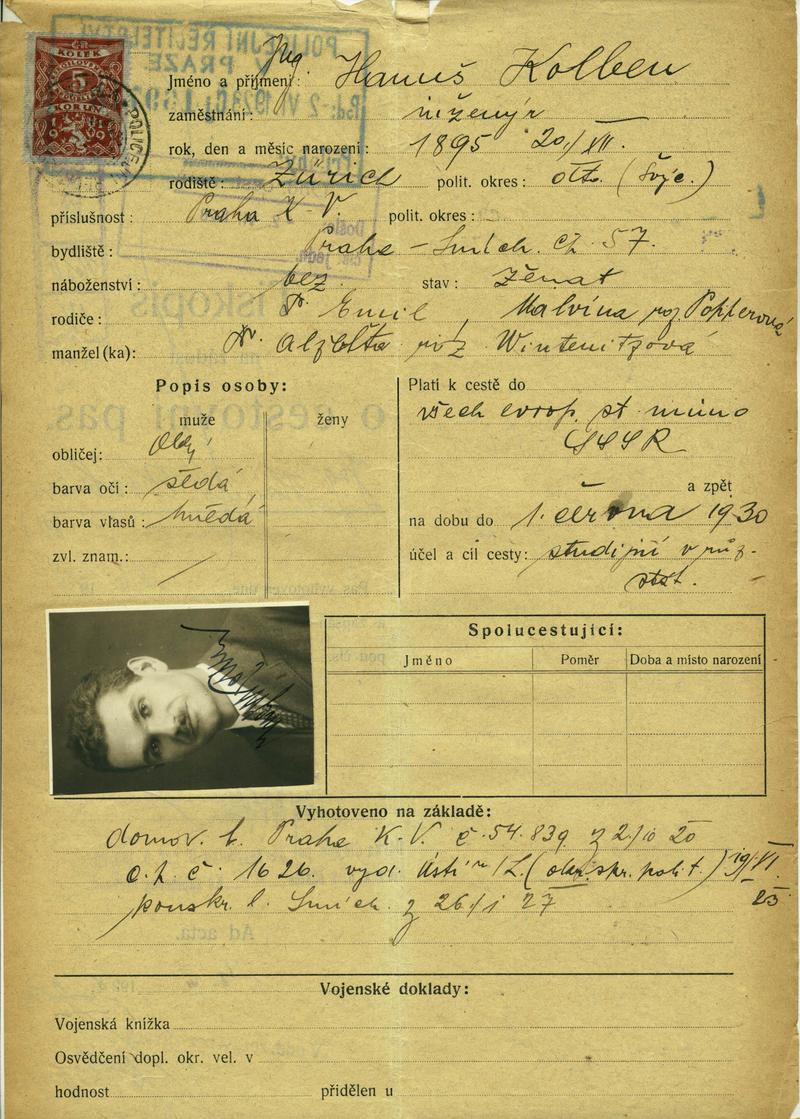 KOLEK
5
KORUN
Jméno a příjmení: Ing. Hanuš Kolben
zaměstnání: inženýr
rok, den a měsíc narození: 1895 20/VII.
rodiště: Zürich polit. okres: dtto (Švýc.)
příslušnost: Praha K-V. polit. okres:
bydliště: Praha - Smích. čp. 57.
náboženství: bez stav: ženat
rodiče: Emil, Malvína roz Popperová
manžel (ka): Alžběta roz Winternitzová
Popis osoby:
muže ženy
obličej:
barva očí: šedá
barva vlasů: hnědá
zvl. znam.:
Platí k cestě do
všech evrop. st. mimo
SSSR
a zpět
na dobu do 1. června 1930
účel a cíl cesty: studijní v růz-
stát.
Spolucestující:
Jméno Poměr Doba a místo narození
Vyhotoveno na základě:
domov. l. Praha K-V. č. 54.839 z 2/10 20
c. p. č. 1626. vyd. Ústí n/L. (okr. spr. polit.) 19/VI. 23
konskr. l. Smích. z 26/1 27
Vojenské doklady:
Vojenská knížka
Osvědčení dopl. okr. vel. v
hodnost přidělen u